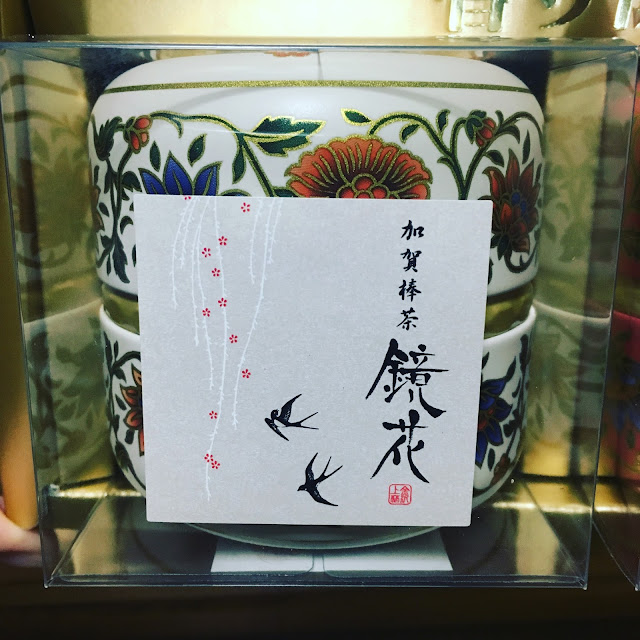 加賀棒茶
鏡花